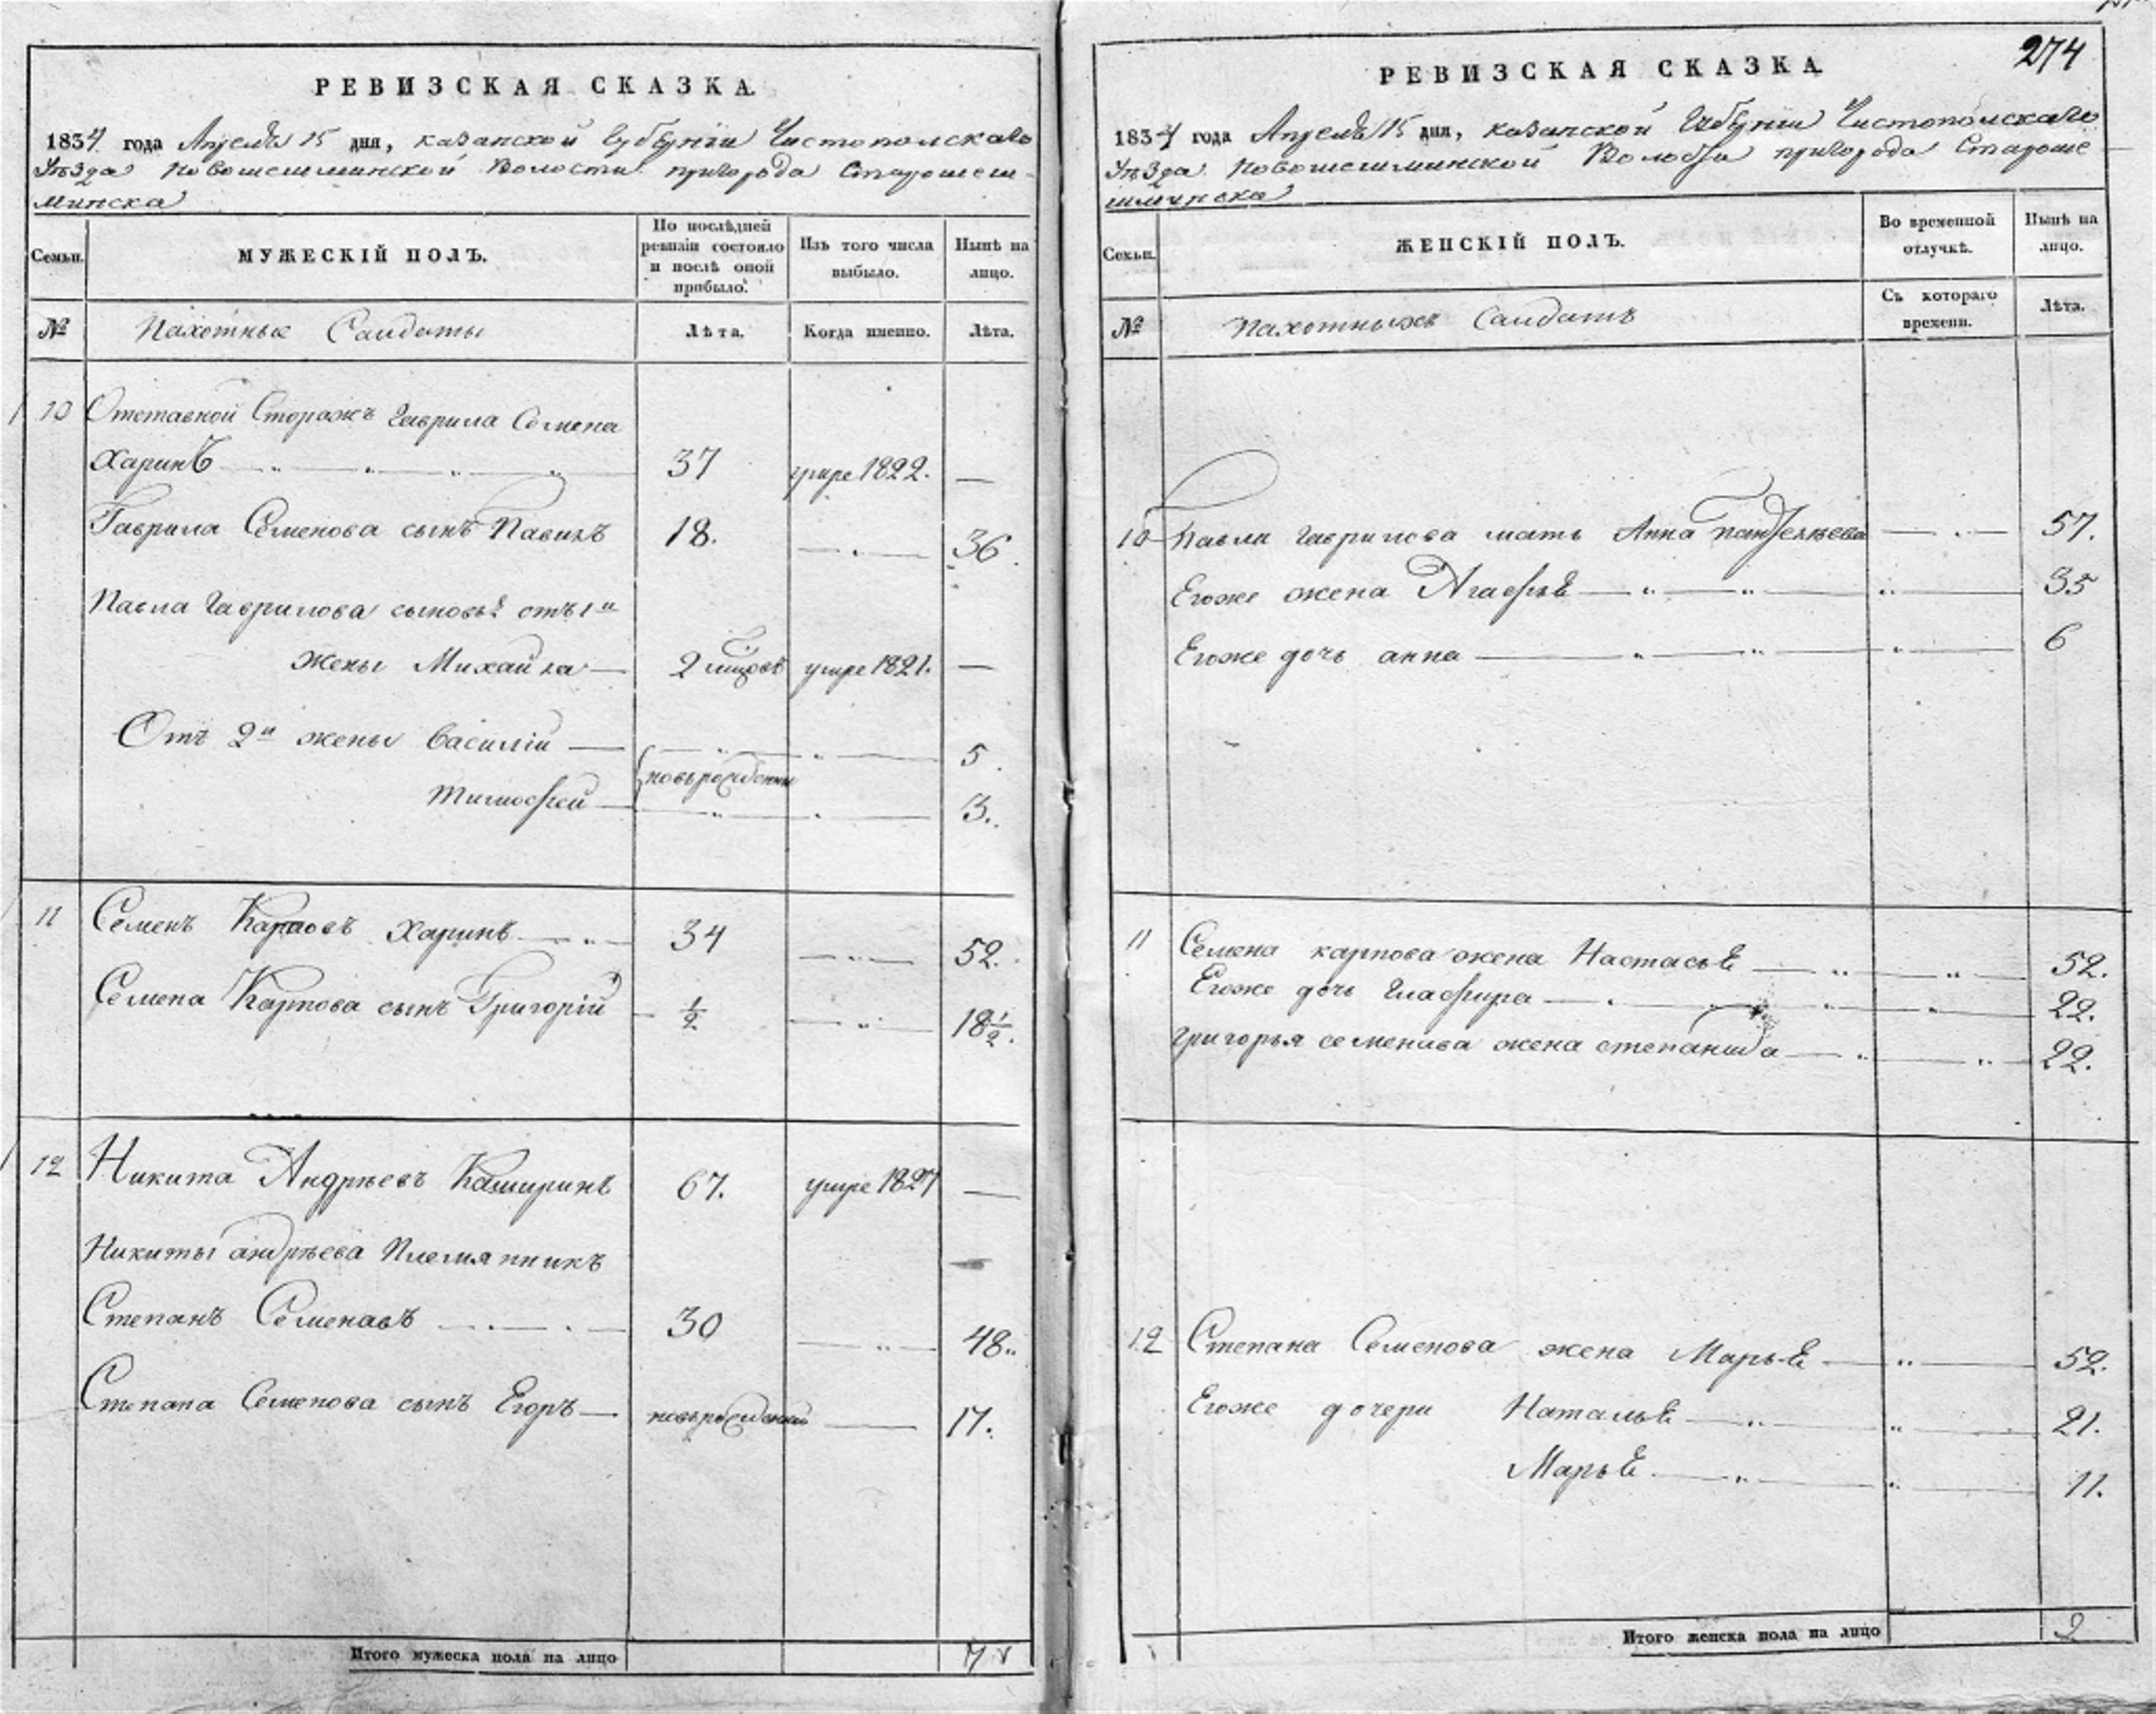 РЕВИЗСКАЯ СКАЗКА
1834 года Апреля 15 дня, казанской губернии Чистополскаго
Уѣзда Новошешминской Волости пригорода Старошеш-
минска
Семьи.
МУЖЕСКІЙ ПОЛЪ.
По послѣдней ревизіи состояло и послѣ оной прибыло.
Изъ того числа выбыло.
Нынѣ на лицо.
№
Пахотные Салдаты
Лѣта.
Когда именно.
Лѣта.
10 Отставной Сторожъ Гаврила Семена
Харинъ 37 умре 1822. —
Гаврила Семенова сынъ Павилъ 18. 36.
Павла Гаврилова сыновьѣ отъ 1й
жены Михайла 2 умре 1821. —
Отъ 2й жены Василіи 5
новърожденны
Тимофей 3.
11 Семенъ Карповъ Харинъ 34 52.
Семена Карпова сынъ Григорій ½ 18½.
12 Никита Андрѣевъ Каширинъ 67. умре 1827 —
Никиты андрѣева Племянникъ
Степанъ Семенавъ 30 48.
Степана Семенова сынъ Егоръ новърожденный 17.
Итого мужеска пола на лицо 7
274
РЕВИЗСКАЯ СКАЗКА
1834 года Апрель 15 дня, казанской Губернии Чистополскаго
Уѣзда Новошешминской Волости пригорода Староше-
шминска
Семьи.
ЖЕНСКІЙ ПОЛЪ.
Во временной отлучкѣ.
Нынѣ на лицо.
№
Пахотныхъ Салдатъ
Съ котораго времени.
Лѣта.
10 Павла Гаврилова мать Анна Пантелѣева 57.
Егоже жена Агафьѣ 35
Егоже дочь анна 6
11 Семена карпова жена Настасьѣ 52.
Егоже дочь Глафира 22.
Григорья семенава жена степанида 22.
12 Степана Семенова жена Марьѣ 52.
Егоже дочери Натальѣ 21.
Марьѣ 11.
Итого женска пола на лицо 9